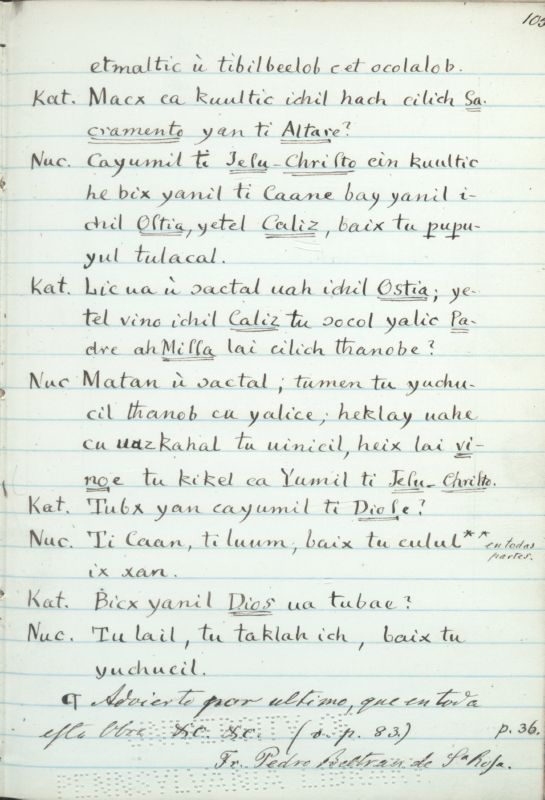 103
etmaltic ù tibilbeelob cet ocolalob.
Kat. Macx ca kuultic ichil hach cilich Sa-
cramento yan ti Altare?
Nuc. Cayumil ti Jesu-Christo cin kuultic
he bix yanil ti Caane bay yanil i-
chil Ostia, yetel Caliz, baix tu pupu-
yul tulacal.
Kat. Lic ua ù ɔactal uah ichil Ostia; ye-
tel vino ichil Caliz tu ɔocol yalic Pa-
dre ah Missa lai cilich thanobe?
Nuc Matan ù ɔactal; tumen tu yuchu-
cil thanob cu yalice; heklay uahe
cu uazkahal tu uinicil, heix lai vi-
noe tu kikel ca Yumil ti Jesu-Christo.
Kat. Tubx yan cayumil ti Diose?
Nuc. Ti Caan, ti luum, baix tu culul** en todas
partes.
ix xan.
Kat. Bicx yanil Dios ua tubae?
Nuc. Tu lail, tu taklah ich, baix tu
yuchucil.
¶ Advierto por ultimo, que en toda
esta Obra &c. &c. (v. p. 83.) p. 36.
Fr. Pedro Beltran de Sta Rosa.